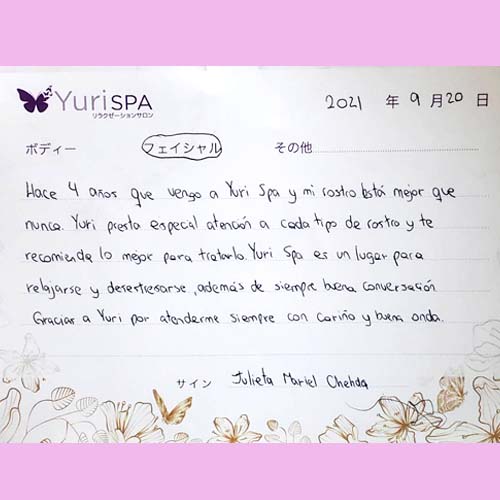 Yuri SPA
リラクゼーションサロン
2021 年 9 月 20 日
ボディー フェイシャル その他
Hace 4 años que vengo a Yuri Spa y mi rostro está mejor que
nunca. Yuri presta especial atención a cada tipo de rostro y te
recomienda lo mejor para tratarlo. Yuri Spa es un lugar para
relajarse y desestresarse, además de siempre buena conversación
Gracias a Yuri por atenderme siempre con cariño y buena onda.
サイン Julieta Mariel Chehda